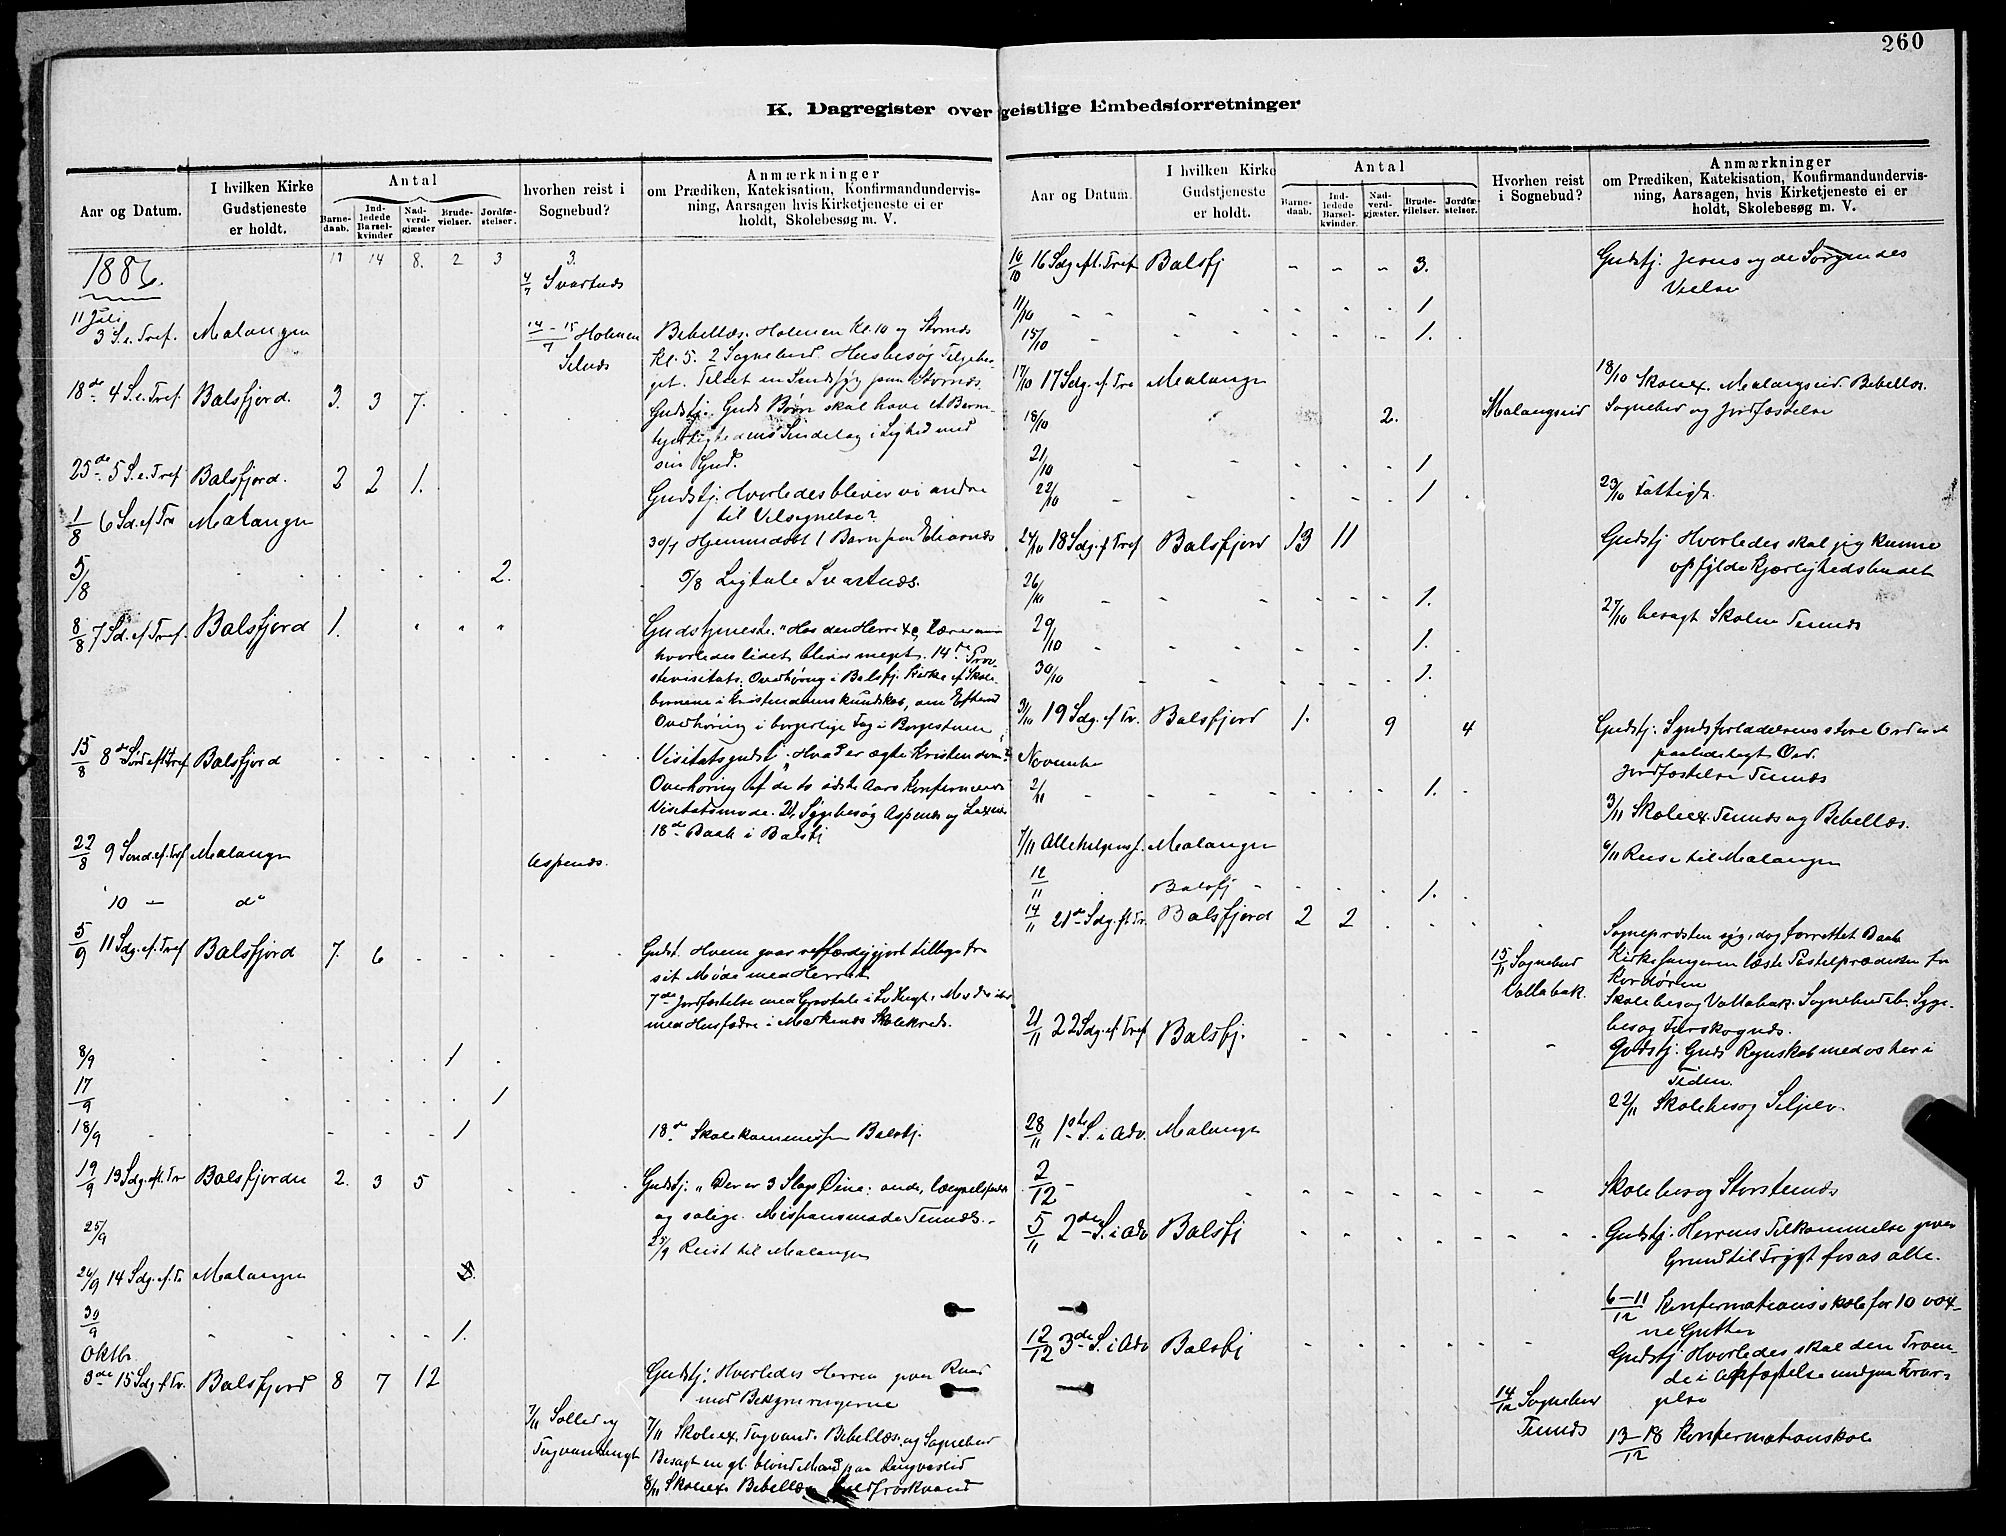 260
K. Dagregister over geistlige Embedsforretninger
Aar og Datum.
I hvilken Kirke
Gudstjeneste
er holdt.
Antal
Barne-
daab.
Ind-
ledede
Barsel-
kvinder
Nad-
verd-
gjæster
Brude-
vielser.
Jordfæ-
stelser.
hvorhen reist i
Sognebud?
Anmærkninger
om Prædiken, Katekisation, Konfirmandundervis-
ning, Aarsagen hvis Kirketjeneste ei er
holdt, Skolebesøg m. V.
1886. 14 8. 2 3 3.
4/7 Svartnæs
11 Juli
3 S. e. Tref. Malangen 14-15/7 Holmen
Bibellæs. Holmen Kl. 10 og
Kl. 5. 2 Sognebud. Husbesøg
18de 4 S. e. Tref. Balsfjord. 3. 3 7.
Gudstj. Guds Børn skal have et Barm-
hjertighedens Sindelag i Lighed med
sin Gud.
25de 5 S. e. Tref Balsfjord. 2 2 1.
Gudstj. Hvorledes bliver vi andre
til Velsignelse?
1/8 6 Sd. ef. Tre Malangen
Hjemmedøbt 1 Barn fra
5/8 2.
5/8 Ligtale Svartnæs.
8/8 7 Sd. ef. Tref. Balsfjord 1.
Gudstjeneste. "Hos den Herre
hvorledes lidet bliver meget. 14de Prov-
stevisitats. Overhøring i Balsfj. Kirke af Skole-
børnene i Kristendomskundskab, om Efterm
Overhøring i borgerlige Fag i Borgestuen
15/8 8de Sønd eft Tref Balsfjord
Visitatsgudst. "Hvad er ægte Kristendom?"
Overhøring af de to sidste Aars Konfirmerede
Visitatsmøde. Sygebesøg Aspenes og
18de Daab i Balsfj
22/8 9 Sønd. ef. Tref Malangen
Aspenæs.
10 — do
5/9 11 Sdg. ef. Tref Balsfjord 7. 6
Gudst. Hvem gaar retfærdiggjort tilbage fra
sit Møde med Herren
7de Jordfæstelse med Gravtale i
med Husfædre i Markenæs Skolekreds.
8/9 1
17/9 1
18/9 1
18de Skolekommission Balsfj.
19/9 13 Sdg. eft. Tr Balsfjorden 2. 3 5
Gudstj: "Der er 3 Slags Øine: onde,
og salige. Missionsmøde Tennæs.
25/9
25/9 Reist til Malangen
26/9 14 Sdg. ef. Tr Malangen
30/9 1.
Oktbr.
3de 15 Sdg. f. Tr. Balsfjord 8 7 12
Gudstj: Hvorledes Herren giver Raad
mod Bekymringerne
7/11 Sollid og
7/11 Skoleex. Tagvand. Bibellæs. og Sognebud
Besøgt en gl. blind Mand paa
8/11 Skoleex. Bibellæs
Aar og Datum.
I hvilken Kirke
Gudstjeneste
er holdt.
Antal
Barne-
daab.
Ind-
ledede
Barsel-
kvinder.
Nad-
verd-
gjæster.
Brude-
vielser.
Jordfæ-
stelser.
Hvorhen reist
i Sognebud?
Anmærkninger
om Prædiken, Katekisation, Konfirmandundervis-
ning, Aarsagen, hvis Kirketjeneste ei er
holdt, Skolebesøg m. V.
10/10 16 Sdg. eft. Tref Balsfj 3.
Gudstj: Jesus og de Sørgendes
11/10 1
15/10 1.
17/10 17 Sdg. ef. Tre Malangen
18/10 Skoleex. Malangseid. Bibellæs.
18/10 2. Malangseid
Sognebud og Jordfæstelse
21/10 1
22/10 1
23/10 Fattigk.
24/10 18 Sdg. f Tref Balsfjord 13 11
Gudstj Hvorledes skal jeg kunne
opfylde Kjærlighedsbudet
26/10 1.
27/10 besøgt Skolen Tennæs
29/10 1.
30/10 1.
31/10 19 Sdg. ef. Tr. Balsfjord 1. 9 4
Gudstj. Syndsforladelsens store Ord er et
paalideligt Ord.
Jordfæstelse Tennæs
November
2/11 1.
3/11 Skoleex. Tennæs og Bibellæs.
7/11 Allehelgensf. Malangen
6/11 Reise til Malangen
12/11 Balsfj 1.
14/11 21de Sdg. ft. Tr. Balsfjord 2 2
Sognepræsten syg, dog forrettet Daab
Kirkesangeren læste Postelprædiken fra
Kordøren
15/11 Sognebud
Vollabak.
Skolebesøg Vollabak. Sognebud sts. Syge-
besøg
21/11 22 Sdg. ef. Tref Balsfj.
Gudstj. Guds Regnskab med os her i
Tiden.
22/11 Skolebesøg Seljelv.
28/11 1ste S. i Adv. Malangen
2/12
Skolebesøg Storstennæs
5/11 2den S. i Adv Balsfj
Gudstj. Herrens Tilkommelse giver
Grund til Frygt for os alle.
6-11/12 Konfirmationsskole for 10 vox-
ne Gutter
12/12 3de S. i Adv Balsfj
Gudstj Hvorledes skal den Troen-
de i Anfægtelse undgaa Forar-
gelse
14/12 Sognebud
Tennæs
13-18/12 Konfirmationskole